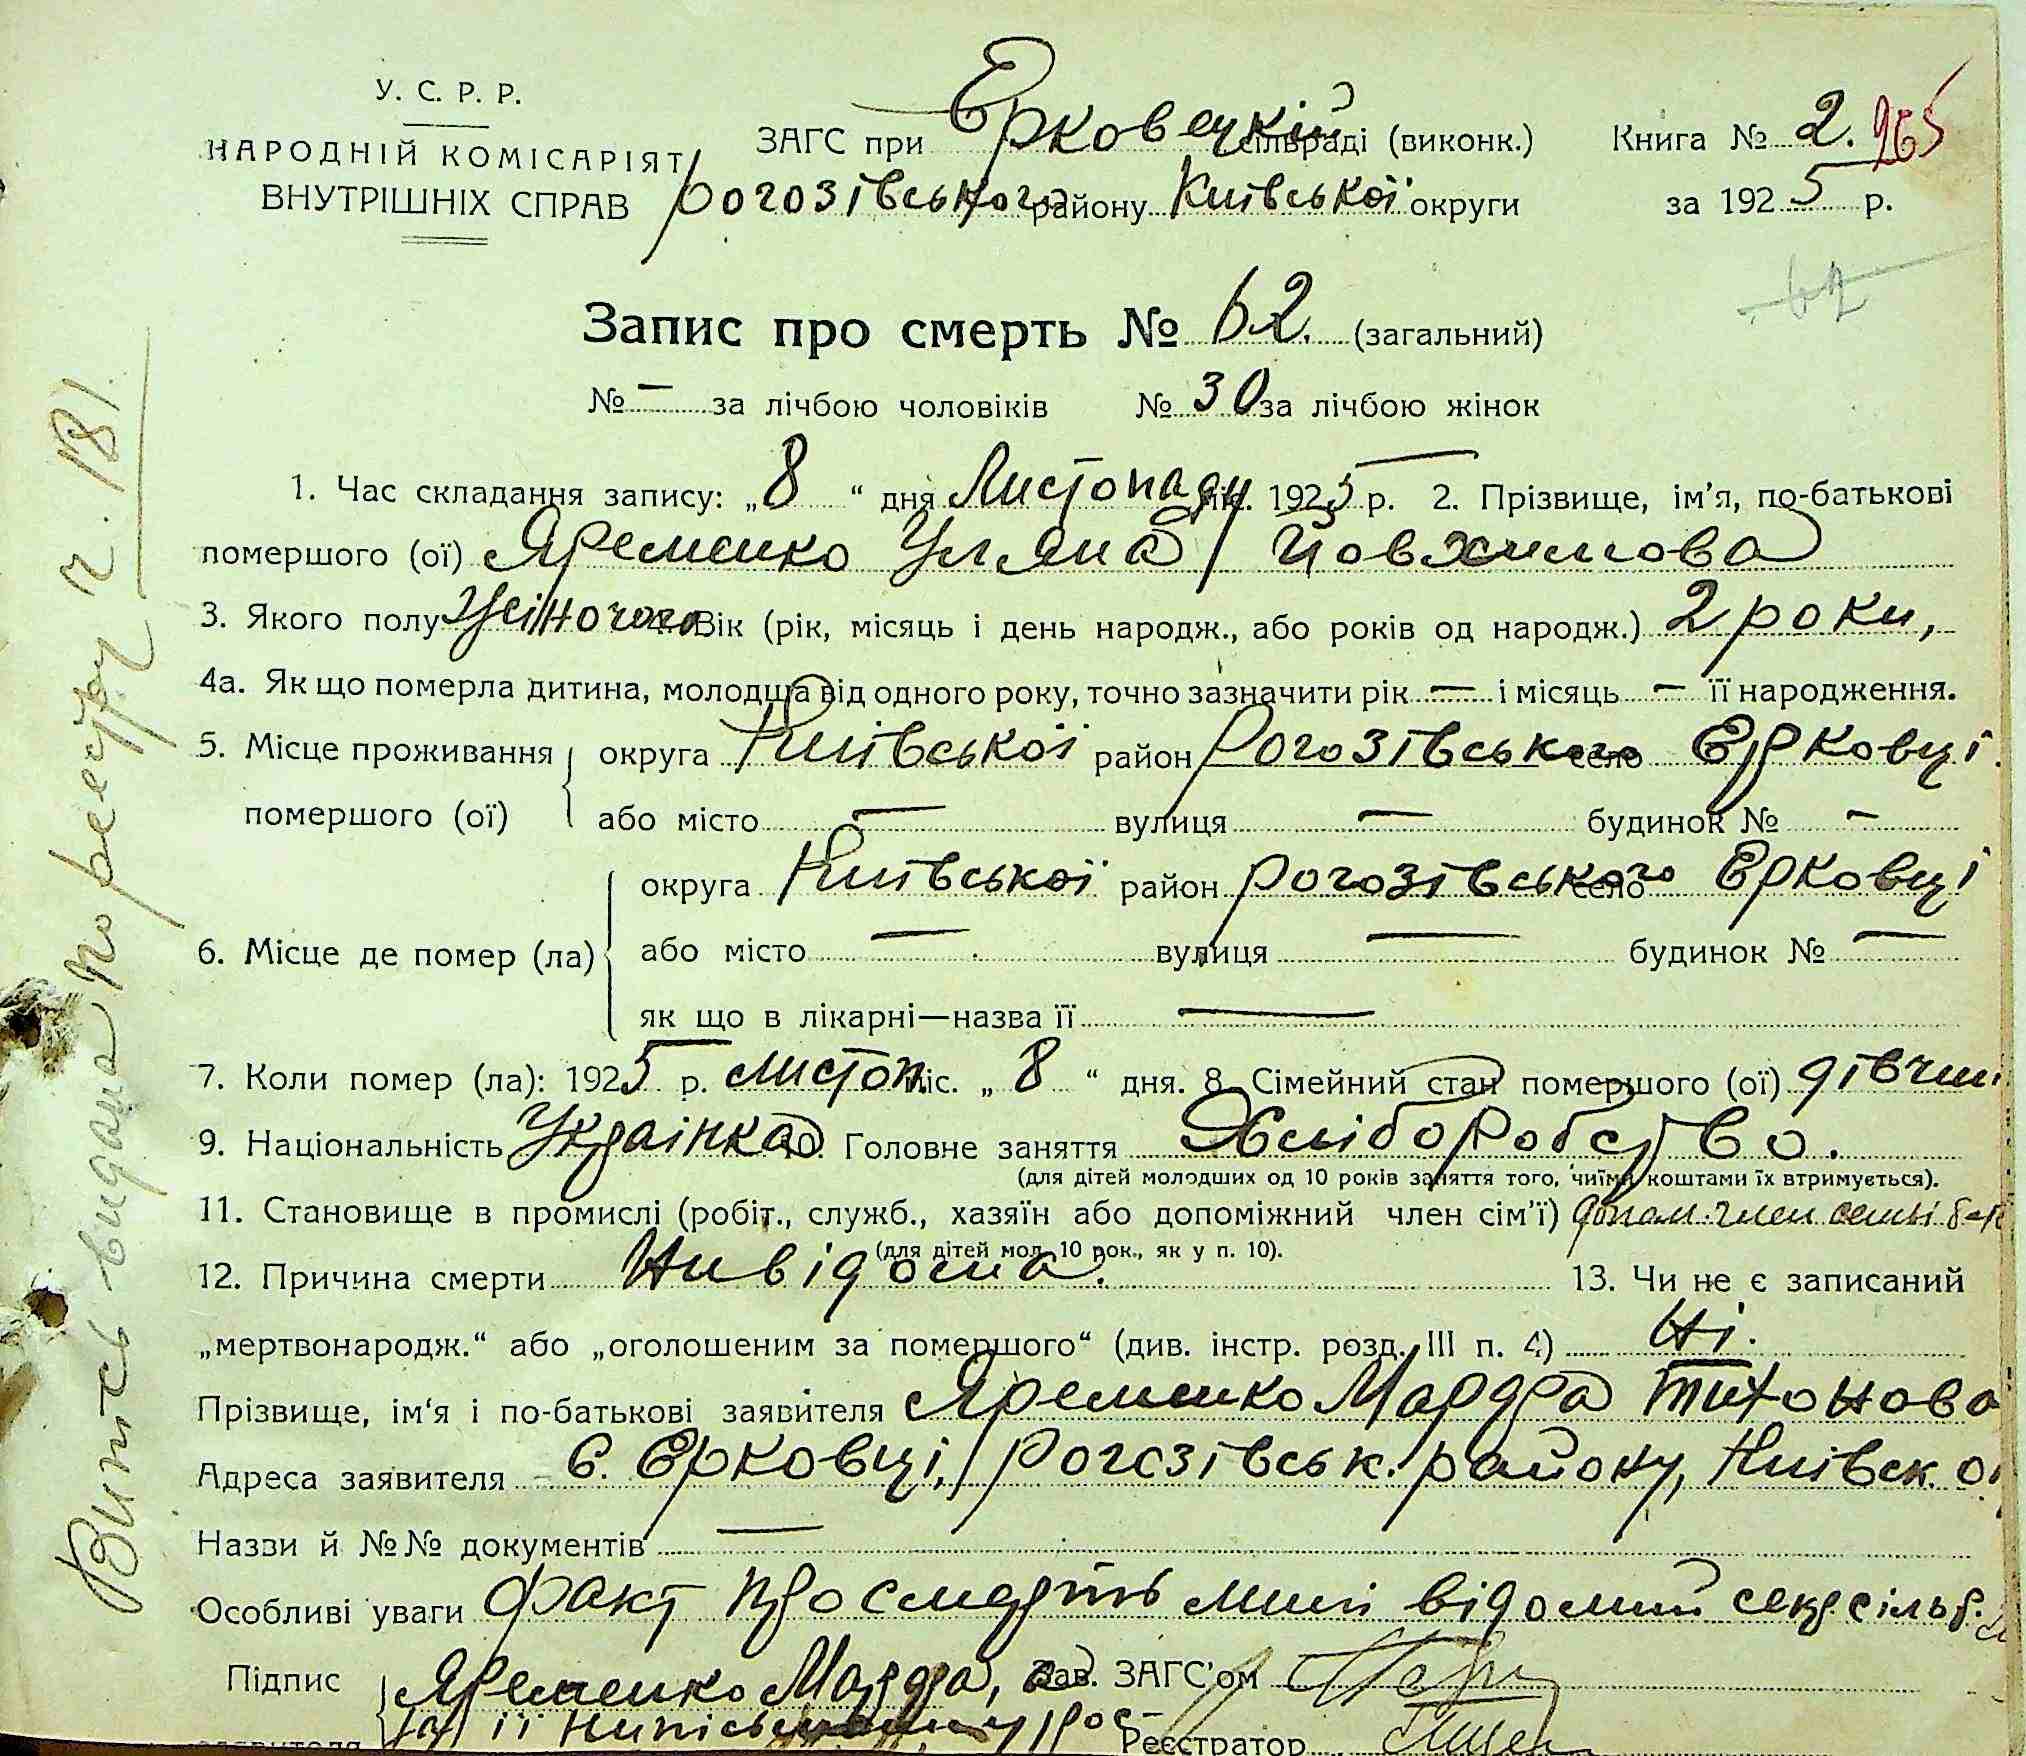 У. С. Р. Р.
НАРОДНІЙ КОМІСАРІЯТ
ВНУТРІШНІХ СПРАВ
ЗАГС при Ерковецкій сільраді (виконк.)
Рогозівського району Київської округи
Книга № 2. 265
за 1925 р.
62
Запис про смерть № 62. (загальний)
№ — за лічбою чоловіків № 30 за лічбою жінок
1. Час складання запису: „8“ дня Листопаду міс. 1925 р. 2. Прізвище, ім'я, по-батькові
помершого (ої) Яременко Уляна Йовхимова
3. Якого полу жіночого Вік (рік, місяць і день народж., або років од народж.) 2 роки,
4а. Як що померла дитина, молодша від одного року, точно зазначити рік — і місяць — її народження.
5. Місце проживання округа Київської район Рогозівського село Ерковці.
помершого (ої) або місто — вулиця — будинок № —
округа Київської район Рогозівського село Ерковці
6. Місце де помер (ла) або місто — вулиця — будинок № —
як що в лікарні—назва її —
7. Коли помер (ла): 1925 р. листоп. міс. „8“ дня. 8. Сімейний стан помершого (ої) дівчин
9. Національність Українка 10. Головне заняття Хліборобство.
(для дітей молодших од 10 років заняття того, чиїми коштами їх втримується).
11. Становище в промислі (робіт., служб., хазяїн або допоміжний член сім'ї) допом. член семьі
(для дітей мол. 10 рок., як у п. 10).
12. Причина смерти Нивідома. 13. Чи не є записаний
„мертвонародж.“ або „оголошеним за помершого“ (див. інстр. розд. III п. 4) Ні.
Прізвище, ім'я і по-батькові заявителя Яременко Мардра Тихонова
Адреса заявителя С. Ерковці, Рогозівськ. району, Київск. о
Назви й №№ документів —
Особливі уваги Факт про смерть мині відомий секр. сільр.
Підпис Яременко Мардра, а Зав. ЗАГС'ом
заявителя за її нипісьменну рос- Реєстратор
Витсь видана по реєстру ч. 181.